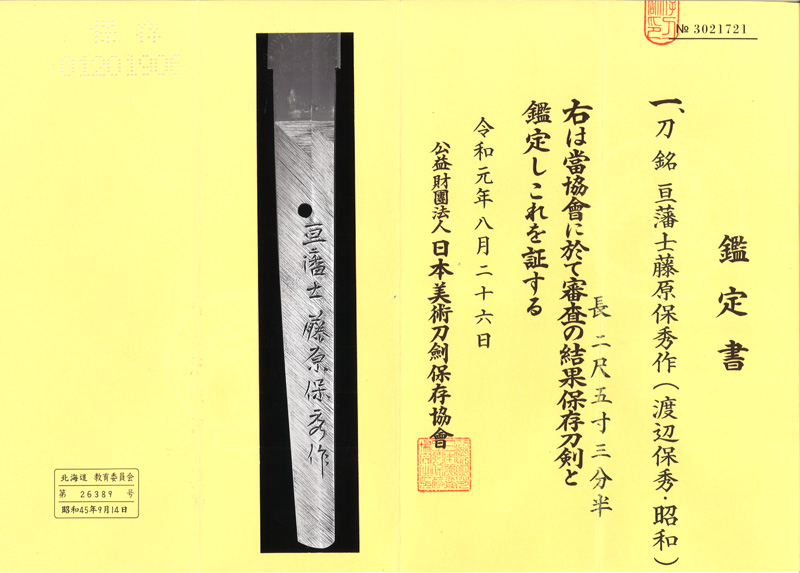 № 3021721
鑑定書
一、刀 銘 亘藩士藤原保秀作(渡辺保秀・昭和)
長 二尺五寸三分半
右は當協會に於て審査の結果保存刀剣と
鑑定しこれを証する
令和元年八月二十六日
公益財團法人日本美術刀劍保存協會
亘藩士藤原保秀作
北海道 教育委員会
第 26389 号
昭和45年9月14日